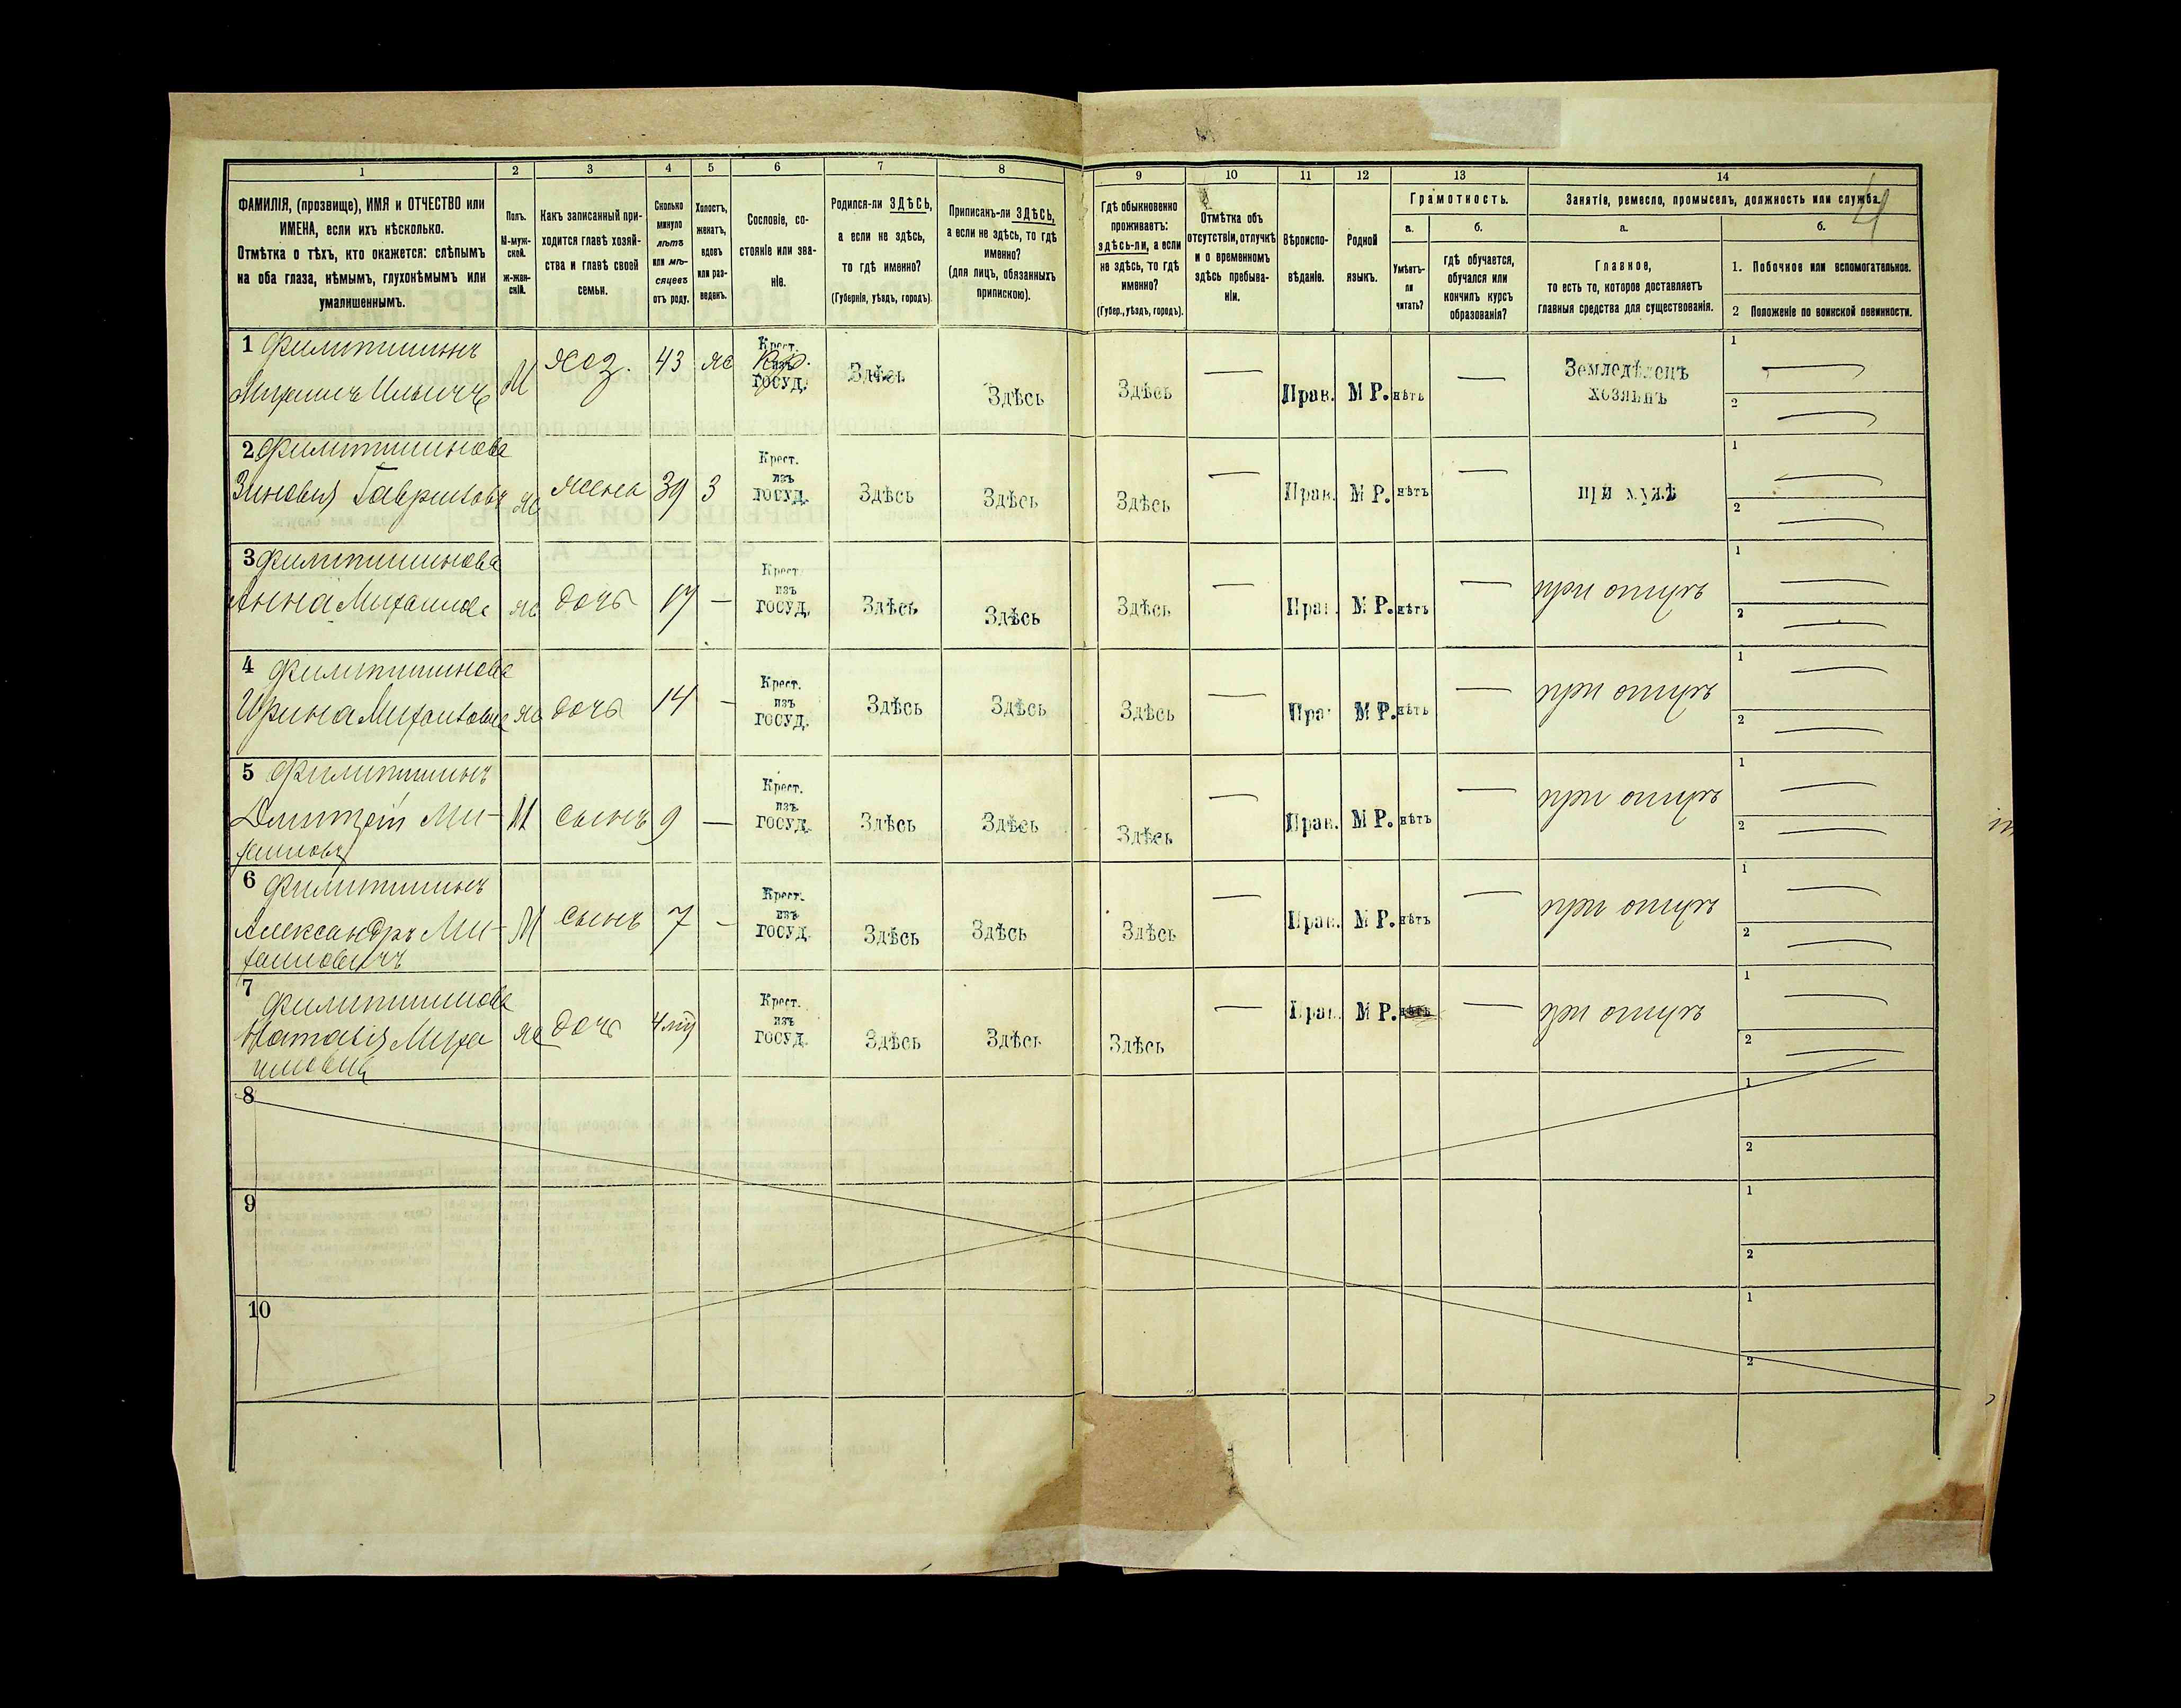 1 2 3 4 5 6 7 8 9 10 11 12 13 14
ФАМИЛІЯ, (прозвище), ИМЯ и ОТЧЕСТВО или
ИМЕНА, если ихъ нѣсколько.
Отмѣтка о тѣхъ, кто окажется: слѣпымъ
на оба глаза, нѣмымъ, глухонѣмымъ или
умалишеннымъ.
Полъ.
М-муж-
ской.
ж-жен-
скій.
Какъ записанный при-
ходится главѣ хозяй-
ства и главѣ своей
семьи.
Сколько
минуло
лѣтъ
или мѣ-
сяцевъ
отъ роду.
Холостъ,
женатъ,
вдовъ
или раз-
веденъ.
Сословіе, со-
стояніе или зва-
ніе.
Родился-ли ЗДѢСЬ,
а если не здѣсь,
то гдѣ именно?
(Губернія, уѣздъ, городъ).
Приписанъ-ли ЗДѢСЬ,
а если не здѣсь, то гдѣ
именно?
(для лицъ, обязанныхъ
припискою).
Гдѣ обыкновенно
проживаетъ:
здѣсь-ли, а если
не здѣсь, то гдѣ
именно?
(Губер., уѣздъ, городъ).
Отмѣтка объ
отсутствіи, отлучкѣ
и о временномъ
здѣсь пребыва-
ніи.
Вѣроиспо-
вѣданіе.
Родной
языкъ.
Грамотность.
а.
Умѣетъ-
ли
читать?
б.
гдѣ обучается,
обучался или
кончилъ курсъ
образованія?
Занятіе, ремесло, промыселъ, должность или служба.
а.
Главное,
то есть то, которое доставляетъ
главныя средства для существованія.
б.
1. Побочное или вспомогательное.
2 Положеніе по воинской повинности.
1 Филипишинъ
Михаилъ Ильичъ М хоз. 43 ж Крест. изъ госуд. Здѣсь Здѣсь Здѣсь — Прав. М Р. нѣтъ — Земледѣлецъ хозяинъ 1 — 2 —
2 Филипишинова
Зиновія Гаврилов ж жена 39 з Крест. изъ госуд. Здѣсь Здѣсь Здѣсь — Прав. М Р. нѣтъ — при мужѣ 1 — 2 —
3 Филипишинова
Анна Михаилов ж дочь 17 — Крест. изъ госуд. Здѣсь Здѣсь Здѣсь — Прав. М Р. нѣтъ — при отцѣ 1 — 2 —
4 Филипишинова
Ирина Михаиловна ж дочь 14 — Крест. изъ госуд. Здѣсь Здѣсь Здѣсь — Прав М Р. нѣтъ — при отцѣ 1 — 2 —
5 Филипишинъ
Дмитрій Ми- М сынъ 9 — Крест. изъ госуд. Здѣсь Здѣсь Здѣсь — Прав. М Р. нѣтъ — при отцѣ 1 — 2 —
хаиловъ
6 Филипишинъ
Александръ Ми- М сынъ 7 — Крест. изъ госуд. Здѣсь Здѣсь Здѣсь — Прав. М Р. нѣтъ — при отцѣ 1 — 2 —
хаиловичъ
7 Филипишинова
Наталія Миха ж дочь Крест. изъ госуд. Здѣсь Здѣсь Здѣсь — Прав. М Р. — при отцѣ 1 — 2 —
иловна
8 1 2
9 1 2
10 1 2